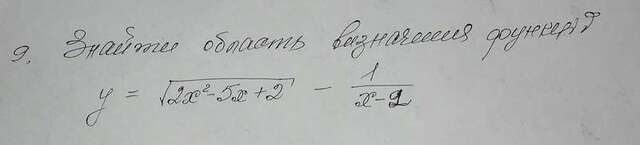 9. Знайти область визначення функції
y = √(2x² - 5x + 2) - 1/(x - 2)